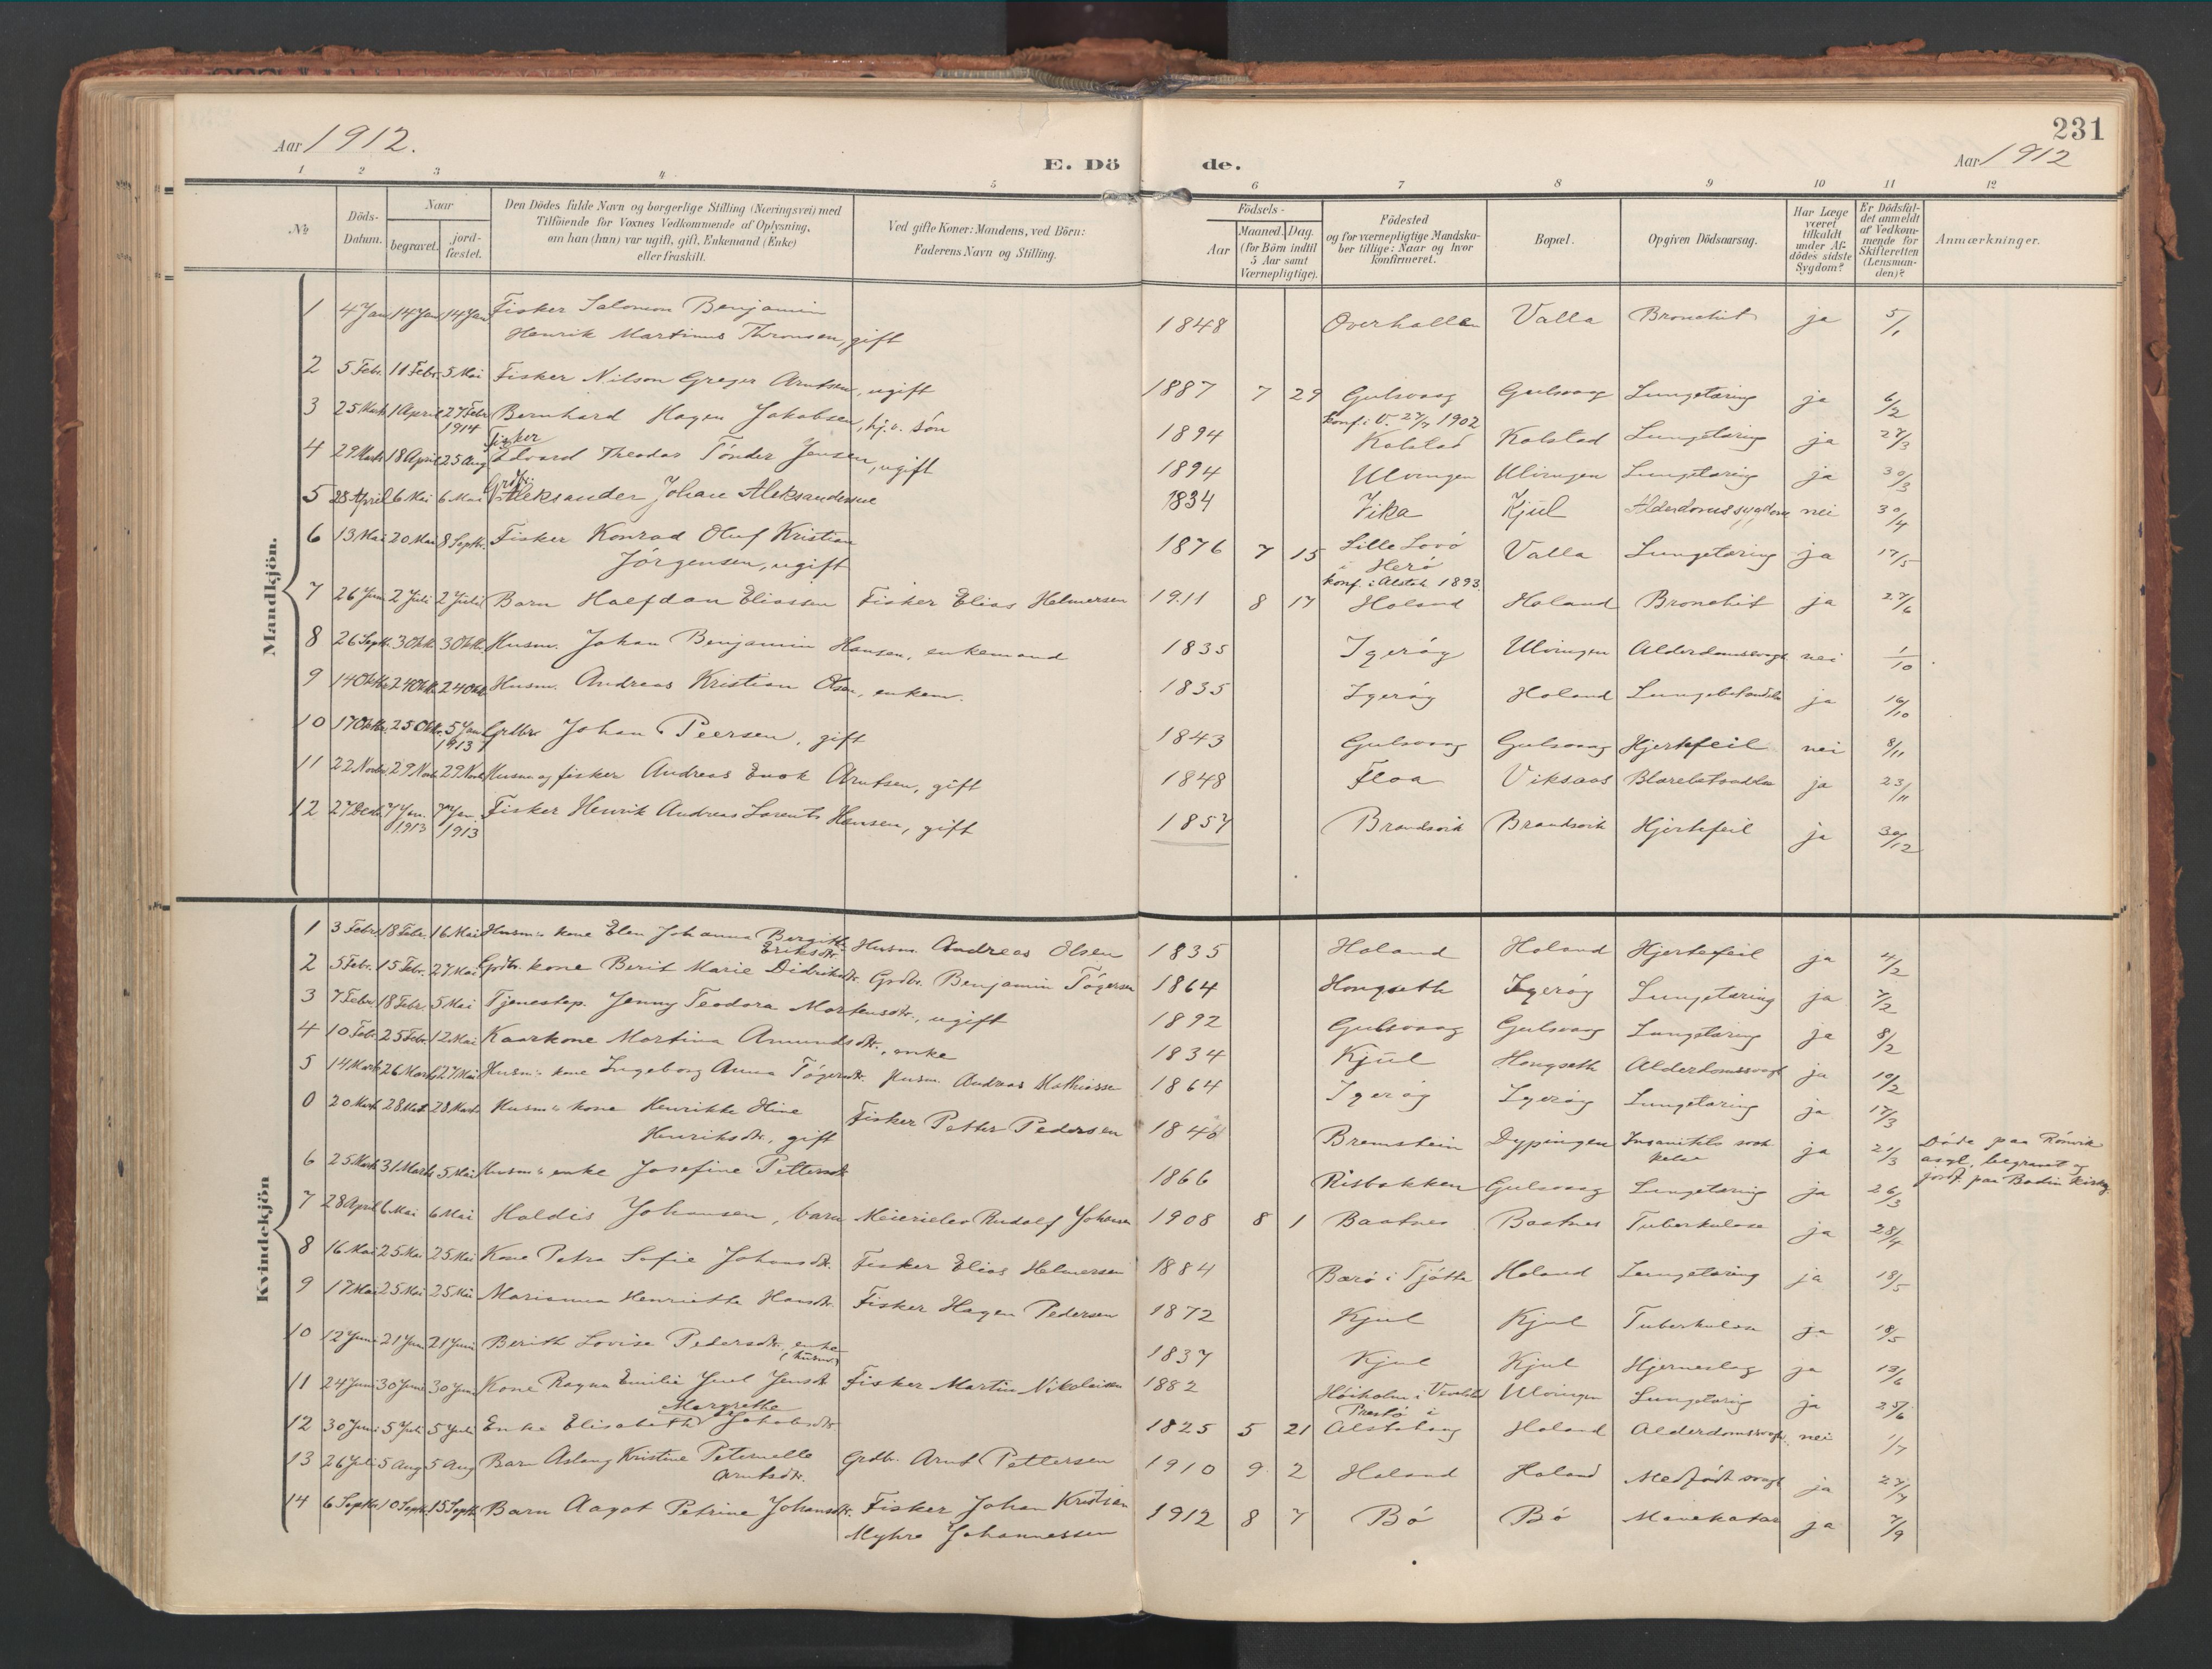 231
Aar 1912.
E. Dö
de.
Aar 1912
1 2 3 4 5 6 7 8 9 10 11 12
№
Döds-Datum.
Naar
begravet.
jord-fæstet.
Den Dödes fulde Navn og borgerlige Stilling (Næringsvei) med
Tilföiende for Voxnes Vedkommende af Oplysning,
om han (hun) var ugift, gift, Enkemand (Enke)
eller fraskilt.
Ved gifte Koner: Mandens, ved Börn:
Faderens Navn og Stilling.
Födsels-
Aar
Maaned. Dag.
(for Börn indtil
5 Aar samt
Værnepligtige).
Födested
og for værnepligtige Mandska-
ber tillige: Naar og hvor
konfirmeret.
Bopæl.
Opgiven Dödsaarsag.
Har Læge
været
tilkaldt
under Af-
dödes sidste
Sygdom?
Er Dödsfal-
det anmeldt
af Vedkom-
mende for
Skifteretten
(Lensman-
den)?
Anmærkninger.
Mandkjön.
1 4 Jan 14 Jan 14 Jan Fisker Salomon Benjamin
Henrik Martinus Thronsen, gift 1848 Overhallen Valla Bronchit ja 5/1
2 5 Febr. 11 Febr. 5 Mai Fisker Nilson Greger Arntsen, ugift 1887 7 29 Gulsvaag Gulsvaag Lungetæring ja 6/2
konf. i V. 27/7 1902
3 25 Marts 1 April 27 Febr 1914 Bernhard Hagen Jakobsen, hj.v. sön 1894 Kolstad Kolstad Lungetæring ja 27/3
Fisker
4 29 Marts 18 April 25 Aug Edvard Theodor Tönder Jensen, ugift 1894 Ulvingen Ulvingen Lungetæring ja 30/3
5 28 April 6 Mai 6 Mai Aleksander Johan Aleksandersen 1834 Vika Kjul Alderdomssygdom nei 30/4
6 13 Mai 20 Mai 8 Septbr. Fisker Konrad Oluf Kristian
Jörgensen, ugift 1876 7 15 Lille Lovö
i Herö
konf. i Alstah. 1893 Valla Lungetæring ja 17/5
7 26 Juni 2 Juli 2 Juli Barn Halfdan Eliassen Fisker Elias Helmersen 1911 8 17 Holand Holand Bronchit ja 27/6
8 26 Septb. 3 Oktb. 3 Oktb. Husm. Johan Benjamin Hansen, enkemand 1835 Igeröy Ulvingen Alderdomssvagh. nei 1/10
9 14 Oktbr 24 Oktb. 24 Okt. Husm. Andreas Kristian Olsen, enkem. 1835 Igeröy Holand ja 16/10
10 17 Oktbr. 25 Oktb. 5 Jan 1913 Grdbr Johan Peersen, gift 1843 Gulsvaag Gulsvaag Hjertefeil nei 8/11
11 22 Novbr 29 Novb. 29 Novb. Husm og fisker Andreas Enok Arntsen, gift 1848 Floa Viksaas ja 23/11
12 27 Decb. 7 Jan. 1913 7 Jan. 1913 Fisker Henrik Andreas Lorents Hansen, gift 1857 Brandsvik Brandsvik Hjertefeil ja 30/12
Kvindekjön
1 3 Febr. 18 Febr. 16 Mai Husm's kone Elen Johanna Bergitte
Eriksdtr. Husm. Andreas Olsen 1835 Holand Holand Hjertefeil ja 4/2
2 5 Febr. 15 Febr. 27 Mai Grdbr. kone Berit Marie Didriksdtr. Grdbr. Benjamin Tögersen 1864 Hongseth Igeröy Lungetæring ja 7/2
3 7 Febr. 18 Febr. 5 Mai Tjenestep. Jenny Teodora Mortensdtr., ugift 1892 Gulsvaag Gulsvaag Lungetæring ja 8/2
4 10 Febr. 25 Febr. 12 Mai Kaarkone Martina Amundsdtr., enke 1834 Kjul Hongseth Alderdomssvagh ja 10/2
5 14 Marts 26 Marts 27 Mai Husm's kone Ingeborg Anna Tögersdtr. Husm. Andreas Mathiassen 1864 Igeröy Igeröy Lungetæring ja 17/3
0 20 Marts 28 Marts 28 Marts Husm's kone Henrikke Hine
Henriksdtr., gift Fisker Petter Pedersen 1848 Bremstein Dypingen ja 21/3 Döde paa Rönvik
asyl, begravet og
jordf. paa Bodin kirkeg.
6 25 Marts 31 Marts 5 Mai Husm's enke Josefine Pettersdtr 1866 Risbakken Gulsvaag Lungetæring ja 26/3
7 28 April 6 Mai 6 Mai Haldis Johansen, barn Meierielev Rudolf Johansen 1908 8 1 Baatnes Baatnes Tuberkulose ja 28/4
8 16 Mai 25 Mai 25 Mai Kone Petra Sofie Johansdtr. Fisker Elias Helmersen 1884 Barö i Tjötta Holand Lungetæring ja 18/5
9 17 Mai 25 Mai 25 Mai Marianna Henriette Hansdtr. Fisker Hagen Pedersen 1872 Kjul Kjul Tuberkulose ja 18/5
10 12 Juni 21 Jun 21 Juni Berith Lovise Pedersdtr. enke
(husm.) 1837 Kjul Kjul Hjerneslag ja 13/6
11 24 Juni 30 Juni 30 Juni Kone Ragna Emilie Juul Jensdtr Fisker Martin Nikolaisen 1882 Höiholm i Vevelstad Ulvingen Lungetæring ja 25/6
Margrethe
12 30 Juni 5 Juli 5 Juli Enke Elisabeth Jakobsdtr 1825 5 21 Prestö i
Alstahaug Holand Alderdomssvagh. nei 1/7
13 26 Juli 5 Aug 5 Aug Barn Aslaug Kristine Peternelle
Arntsdtr. Grdbr. Arnt Pettersen 1910 9 2 Holand Holand Medfödt svagh ja 27/7
14 6 Septbr. 10 Septb. 15 Septb. Barn Aagot Petrine Johansdtr. Fisker Johan Kristian
Myhre Johannessen 1912 8 7 Bö Bö Mavekatar ja 7/9